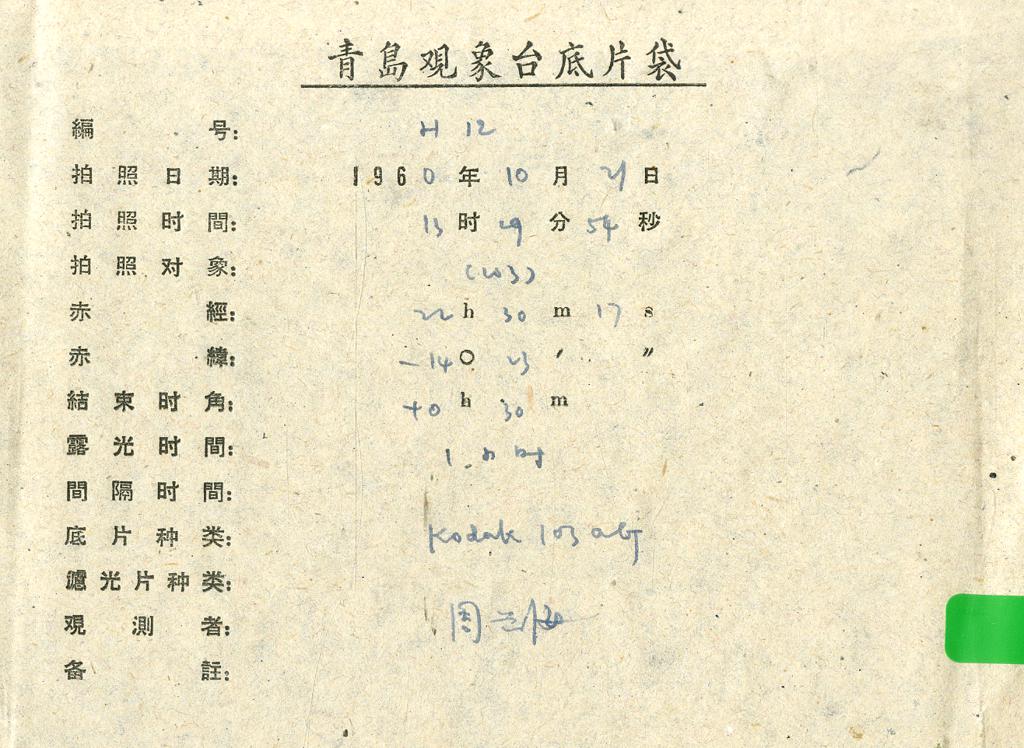 青島观象台底片袋
編号: H 12
拍照日期: 1960年10月21日
拍照时間: 13时29分54秒
拍照对象: (203)
赤經: 22h 30m 17s
赤緯: -14° 23′ ″
結束时角: +0h 30m
露光时間: 1.小时
間隔时間:
底片种类: Kodak 103 aG
濾光片种类:
观測者: 周
备註: